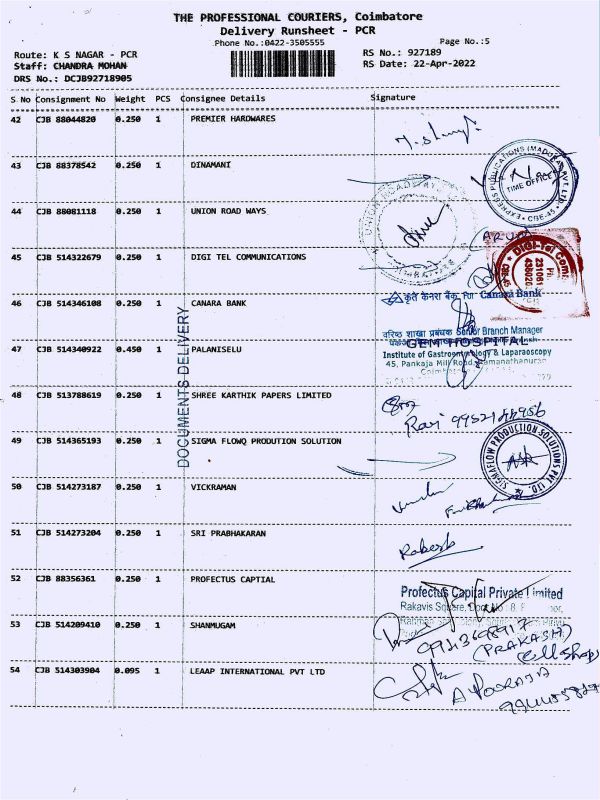 THE PROFESSIONAL COURIERS, Coimbatore
Delivery Runsheet - PCR
Phone No.:0422-3505555
Page No.:5
Route: K S NAGAR - PCR
RS No.: 927189
Staff: CHANDRA MOHAN
RS Date: 22-Apr-2022
DRS No.: DCJB92718905
S No Consignment No Weight PCS Consignee Details Signature
42 CJB 88044820 0.250 1 PREMIER HARDWARES
43 CJB 88378542 0.250 1 DINAMANI
TIME OFFICE
CBE-45
44 CJB 88081118 0.250 1 UNION ROAD WAYS
UNION ROADWAYS
(ARUN)
45 CJB 514322679 0.250 1 DIGI TEL COMMUNICATIONS
DIGI-Tel
46 CJB 514346108 0.250 1 CANARA BANK
कृते केनरा बैंक For Canara Bank
वरिष्ठ शाखा प्रबंधक Senior Branch Manager
DOCUMENTS DELIVERY
47 CJB 514340922 0.450 1 PALANISELU
GEM HOSPITAL
Institute of Gastroenterology & Laparaoscopy
45, Pankaja Mill Road, Ramanathapuram
48 CJB 513788619 0.250 1 SHREE KARTHIK PAPERS LIMITED
Ravi
49 CJB 514365193 0.250 1 SIGMA FLOWQ PRODUTION SOLUTION
SIGMAFLOW PRODUCTION SOLUTIONS PVT. LTD.
50 CJB 514273187 0.250 1 VICKRAMAN
51 CJB 514273204 0.250 1 SRI PRABHAKARAN
Rakesh
52 CJB 88356361 0.250 1 PROFECTUS CAPTIAL
Profectus Capital Private Limited
Rakavis Square, Door No : 8,
53 CJB 514209410 0.250 1 SHANMUGAM
(PRAKASH)
Cell shop
54 CJB 514303904 0.095 1 LEAAP INTERNATIONAL PVT LTD